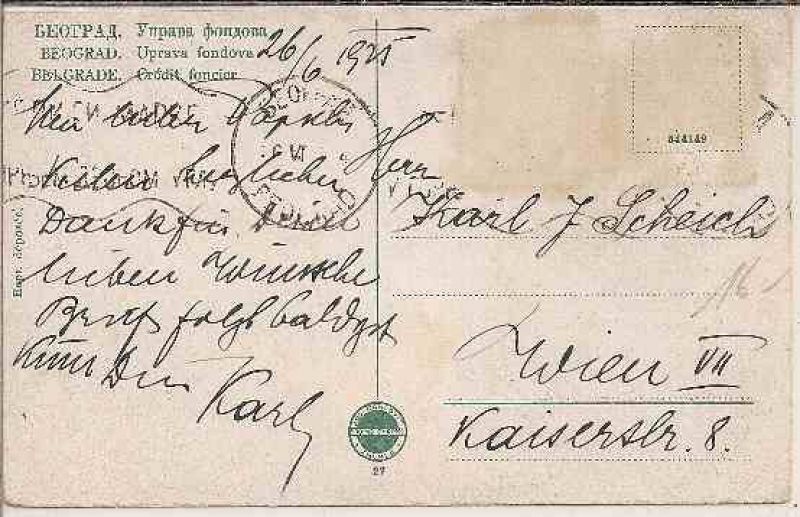 БЕОГРАД. Управа фондова
BEOGRAD. Uprava fondova
BELGRADE. Crédit foncier
26/6 1925
Mein lieber
herzlichen
Dank für Deine
lieben Wünsche
Brief folgt baldigst
Dein
Karl
Herr
Karl J. Scheich
Wien VII
Kaiserstr. 8.
844149
27